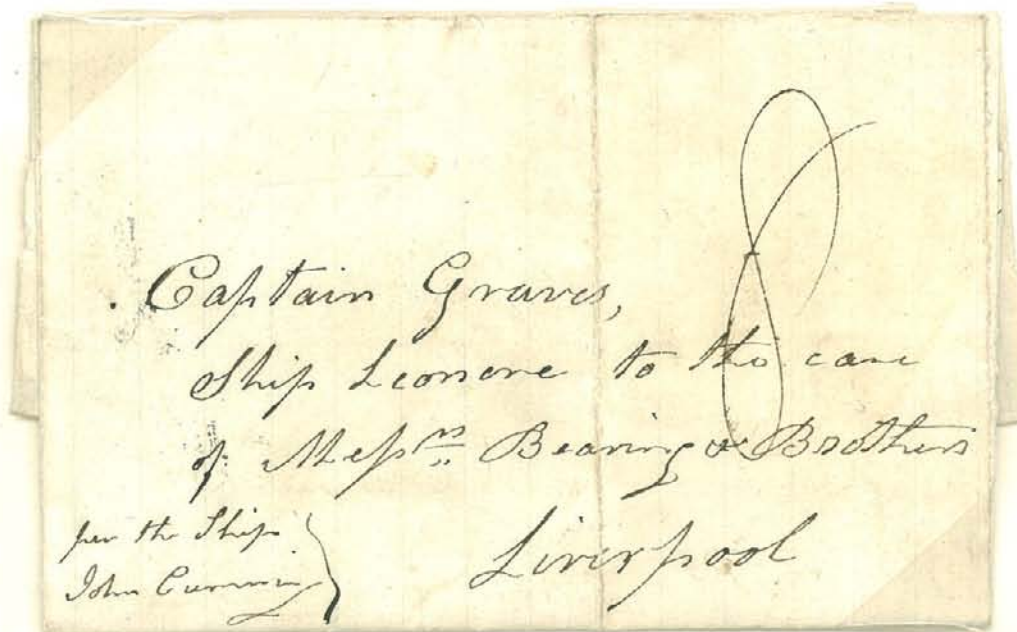 8
Captain Graves,
Ship Leonore to the care
of Messrs Bearing & Brothers
Liverpool
per the Ship
John Cumming